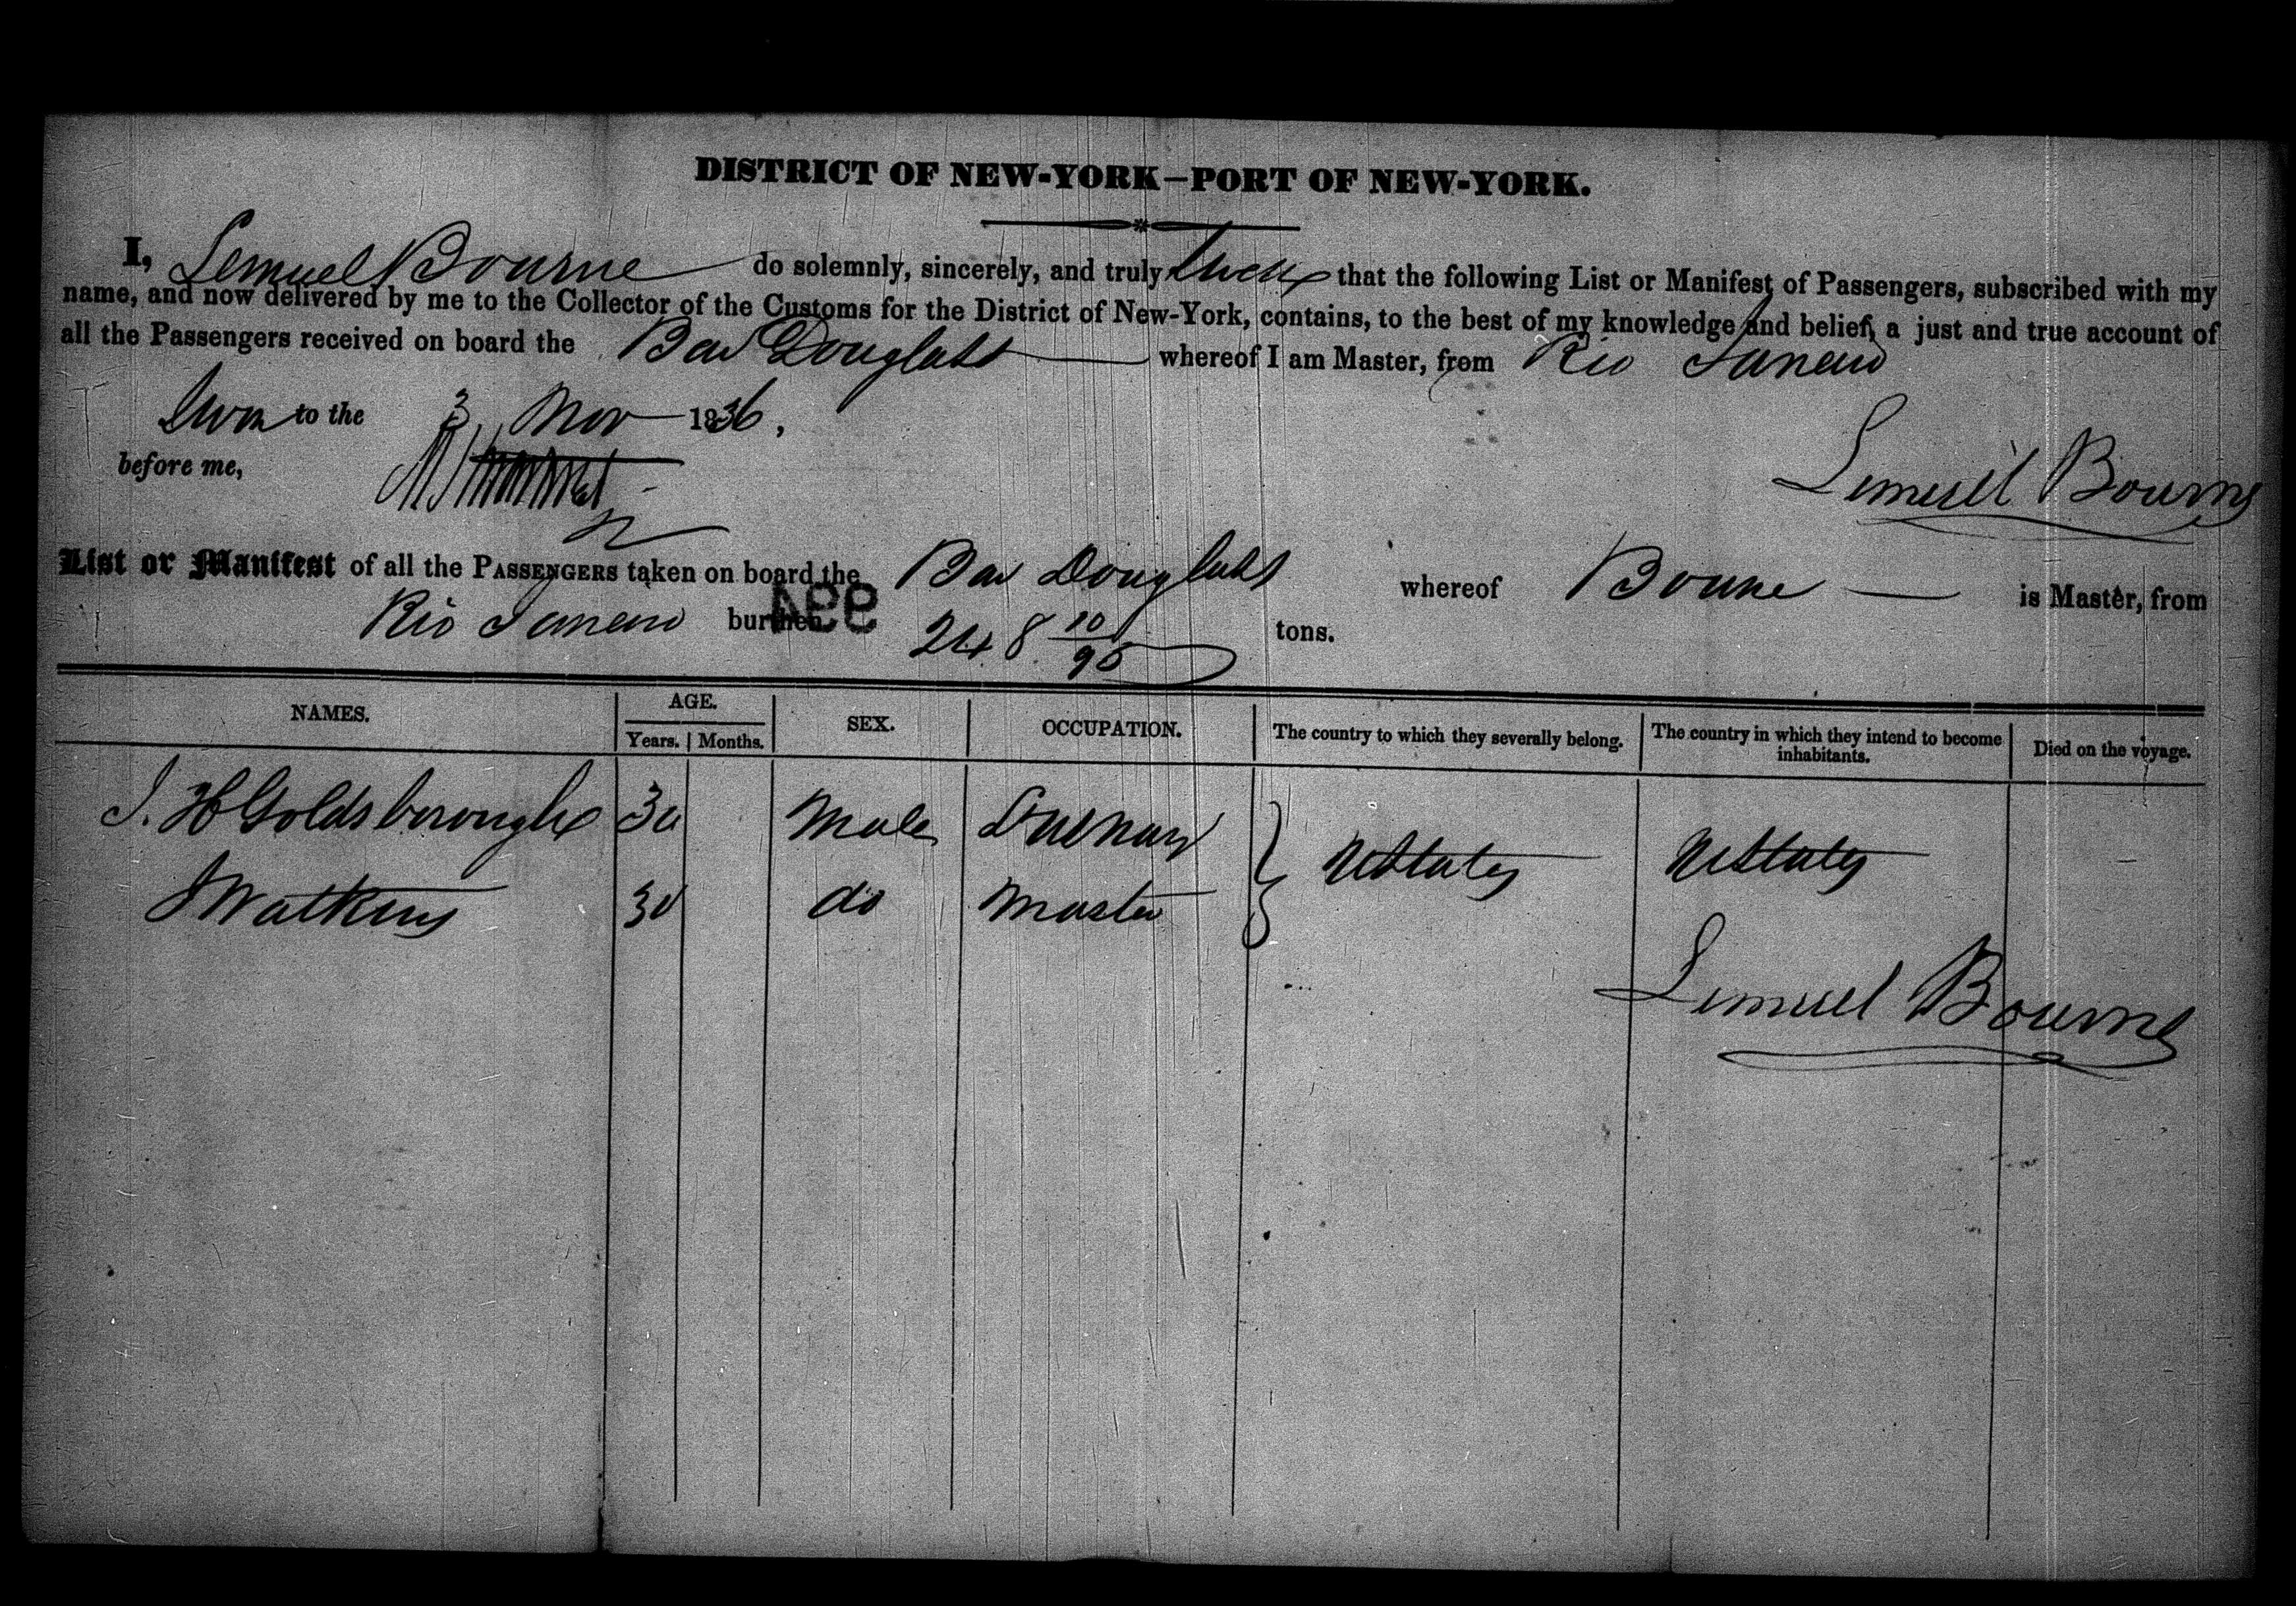 DISTRICT OF NEW-YORK—PORT OF NEW-YORK.
I, Lemuel Bourne do solemnly, sincerely, and truly swear that the following List or Manifest of Passengers, subscribed with my
name, and now delivered by me to the Collector of the Customs for the District of New-York, contains, to the best of my knowledge and belief, a just and true account of
all the Passengers received on board the Bar Douglass whereof I am Master, from Rio Janeiro
Sworn to the 3 Nov 1836,
before me,
Lemuel Bourne
List or Manifest of all the PASSENGERS taken on board the Bar Douglass whereof Bourne is Master, from
Rio Janeiro burthen 248 10/95 tons.
NAMES. AGE. SEX. OCCUPATION. The country to which they severally belong. The country in which they intend to become inhabitants. Died on the voyage.
Years. Months.
J. H Goldsborough 30 Male
J Watkins 30 do Master
U States U States
Lemuel Bourne